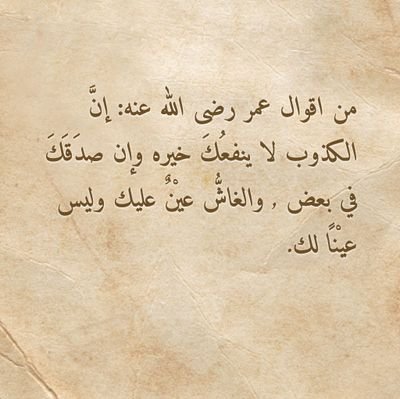 من اقوال عمر رضى الله عنه: إنَّ
الكذوب لا ينفعُكَ خيره وإن صدَقَكَ
في بعض , والغاشُّ عيْنٌ عليك وليس
عيْنًا لك.